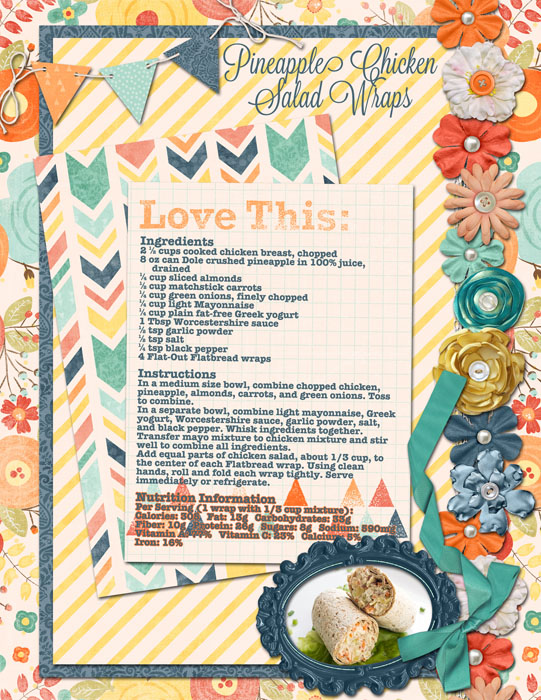 Pineapple Chicken
Salad Wraps
Love This:
Ingredients
2 ½ cups cooked chicken breast, chopped
8 oz can Dole crushed pineapple in 100% juice,
drained
cup sliced almonds
cup matchstick carrots
cup green onions, finely chopped
cup light Mayonnaise
cup plain fat-free Greek yogurt
1 Tbsp Worcestershire sauce
tsp garlic powder
tsp salt
tsp black pepper
4 Flat-Out Flatbread wraps
Instructions
In a medium size bowl, combine chopped chicken,
pineapple, almonds, carrots, and green onions. Toss
to combine.
In a separate bowl, combine light mayonnaise, Greek
yogurt, Worcestershire sauce, garlic powder, salt,
and black pepper. Whisk ingredients together.
Transfer mayo mixture to chicken mixture and stir
well to combine all ingredients.
Add equal parts of chicken salad, about 1/3 cup, to
the center of each Flatbread wrap. Using clean
hands, roll and fold each wrap tightly. Serve
immediately or refrigerate.
Nutrition Information
Per Serving (1 wrap with 1/3 cup mixture):
Calories: Fat: 13g Carbohydrates: 33g
Fiber: 10g Protein: 26g Sugars: 8g Sodium: 590mg
Vitamin A: Vitamin C: 23% Calcium: 5%
Iron: 16%